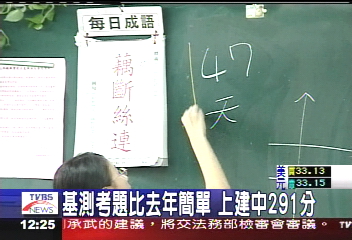 每日成語
藕斷絲連
47
天
美元
買33.13
賣33.15
TVBS
NEWS
基測考題比去年簡單 上建中291分
12:25
承武的建議，將交法務部檢審會審議。